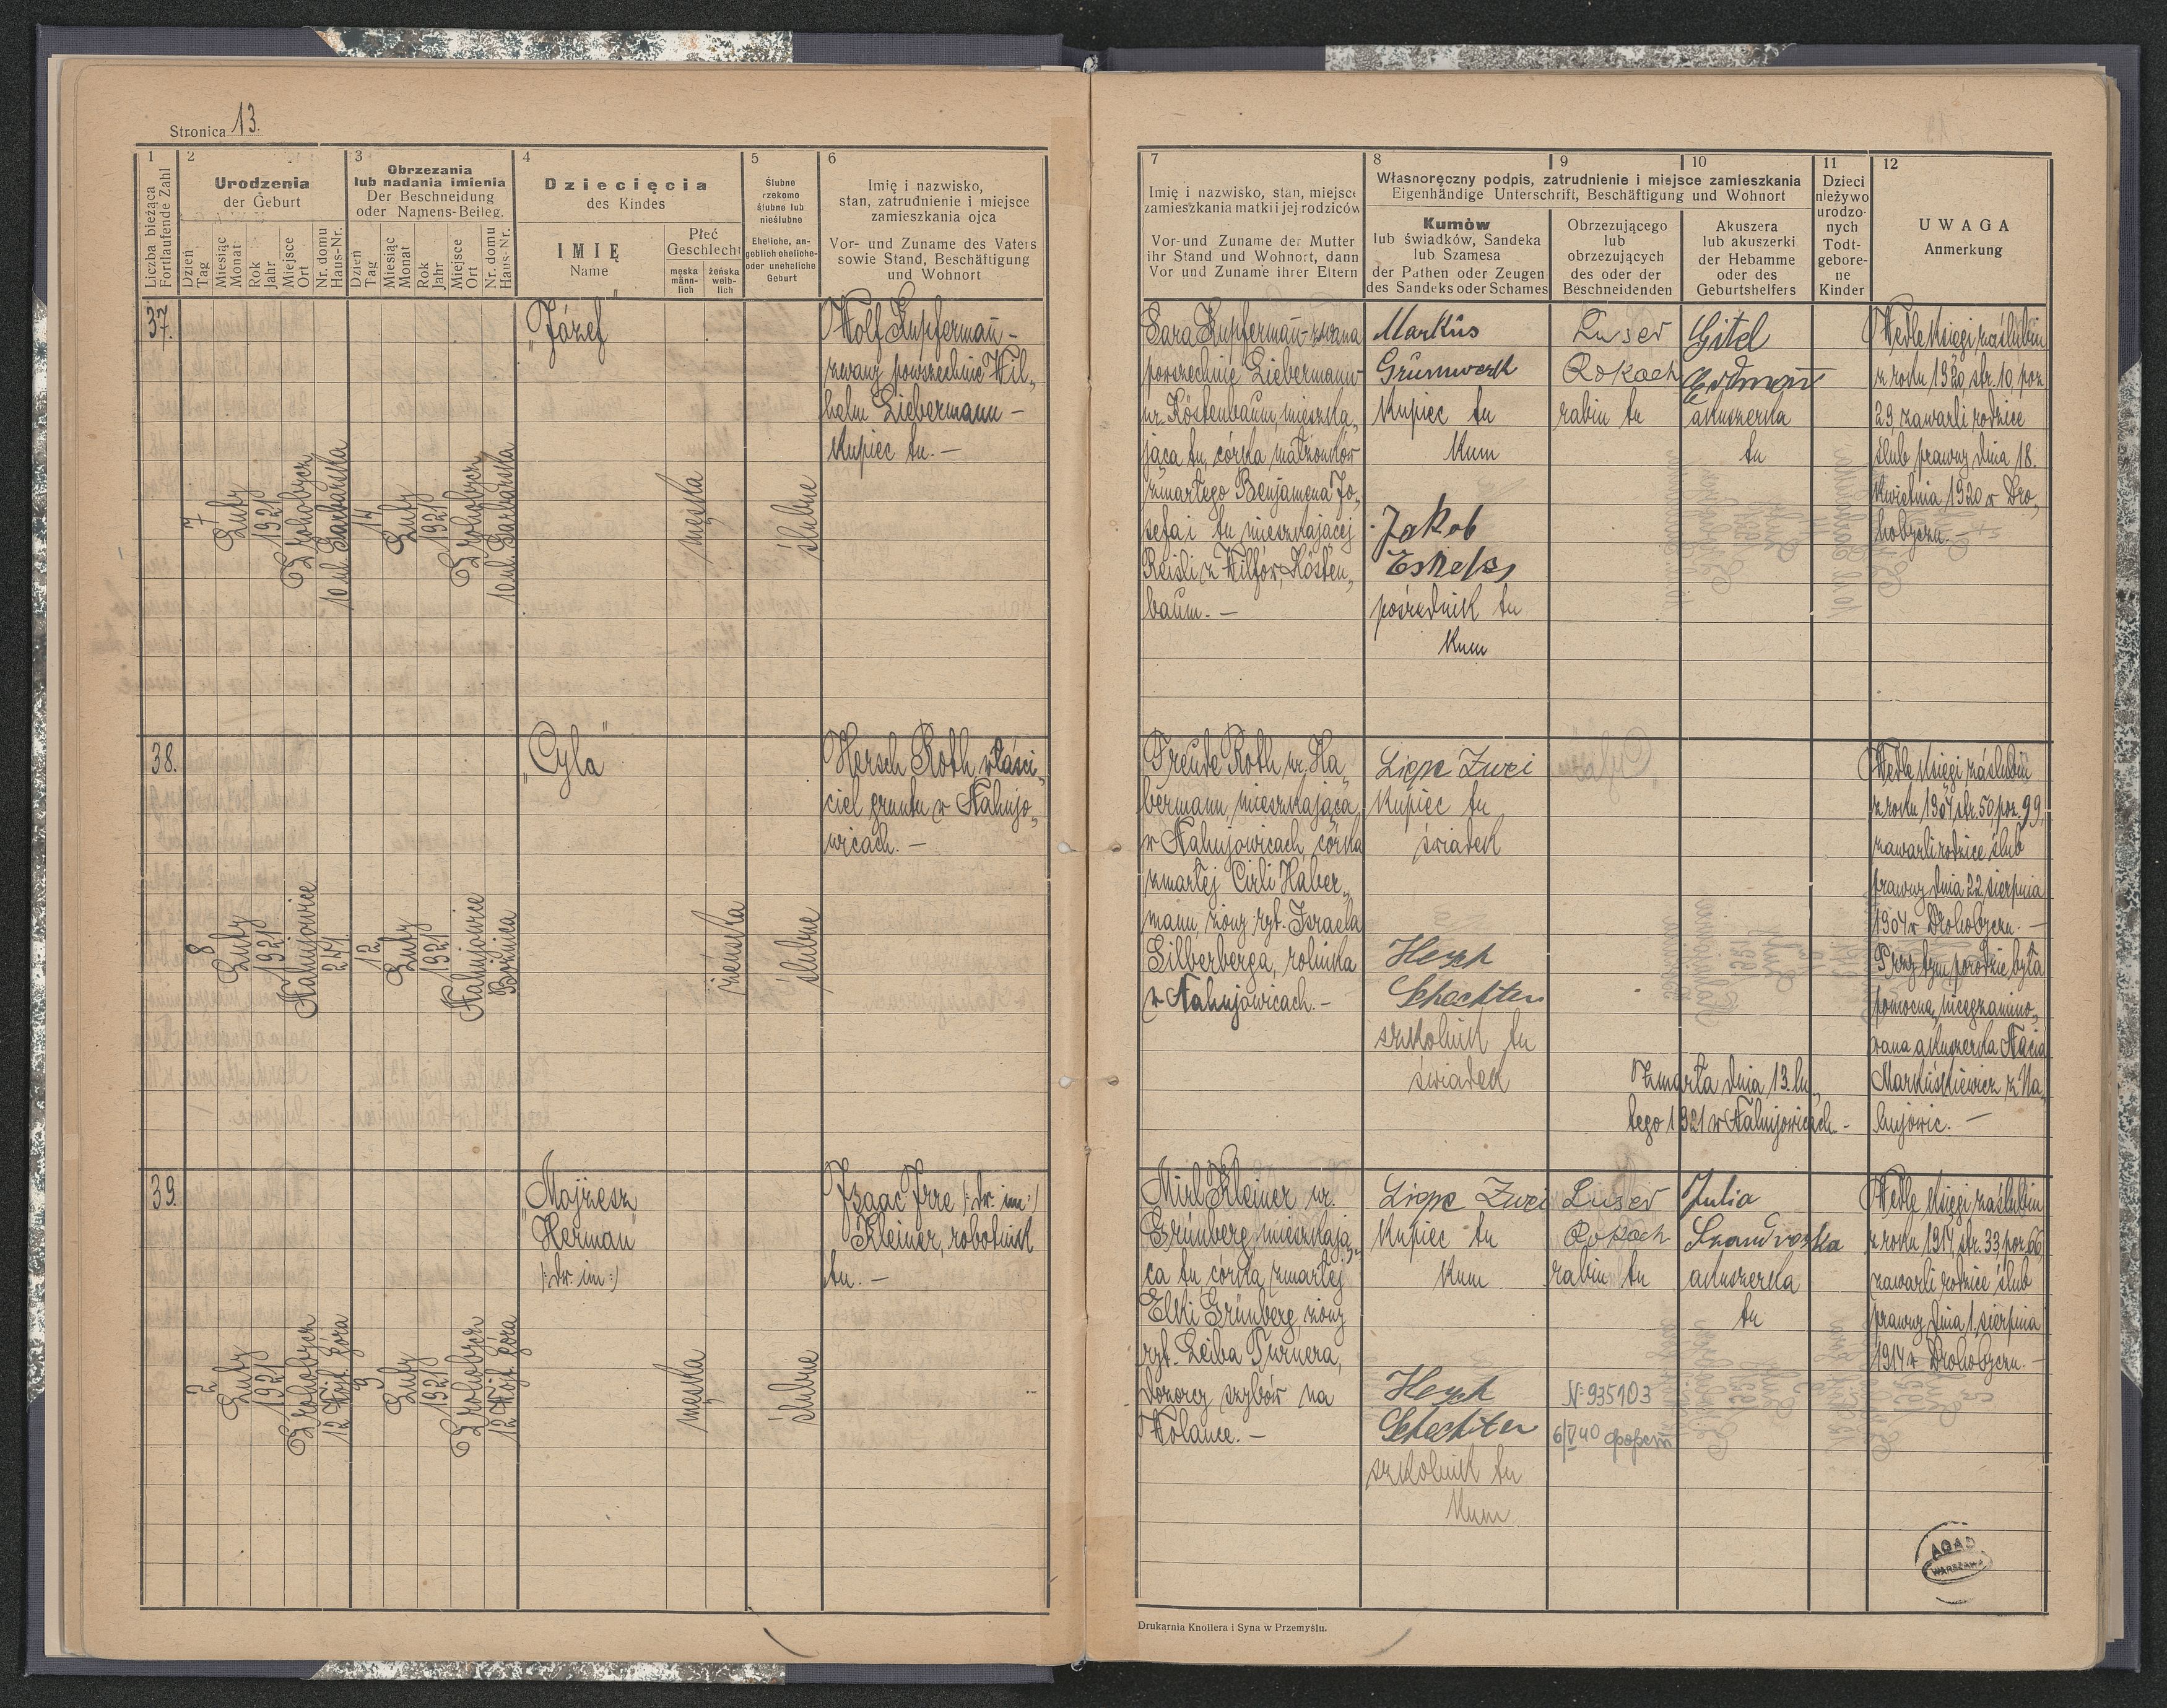 Stronica 13.
1
2
3
4
5
6
Liczba bieżąca
Fortlaufende Zahl
Urodzenia
der Geburt
Dzień
Tag
Miesiąc
Monat
Rok
Jahr
Miejsce
Ort
Nr. domu
Haus-Nr.
Obrzezania
lub nadania imienia
Der Beschneidung
oder Namens-Beileg.
Dzień
Tag
Miesiąc
Monat
Rok
Jahr
Miejsce
Ort
Nr. domu
Haus-Nr.
Dziecięcia
des Kindes
IMIĘ
Name
Płeć
Geschlecht
męska
männ-
lich
żeńska
weib-
lich
Ślubne
rzekomo
ślubne lub
nieślubne
Eheliche, an-
geblich eheliche-
oder uneheliche
Geburt
Imię i nazwisko,
stan, zatrudnienie i miejsce
zamieszkania ojca
Vor- und Zuname des Vaters
sowie Stand, Beschäftigung
und Wohnort
37.
7
Luty
1921
Drohobycz
10 ul. Garbarska
14
Luty
1921
Drohobycz
10 ul. Garbarska
„Józef"
męska
ślubne
Wolf Kupfermañ -
zwany powszechnie Wil„
helm Liebermann -
Kupiec tu. -
38.
8
Luty
1921
Nahujowice
244.
12
Luty
1921
Nahujowice
Bóżnica
„Cyla"
żeńska
ślubne
Hersch Roth właści„
ciel gruntu w Nahujo„
wicach. -
39.
2
Luty
1921
Drohobycz
12 Wójt. góra
9
Luty
1921
Drohobycz
12 Wójt. góra
„Mojżesz
Herman"
(:dw. im:)
męska
ślubne
Izaac Izre (:dw. im:)
Kleiner, robotnik
tu. -
7
8
9
10
11
12
Imię i nazwisko, stan, miejsce
zamieszkania matki i jej rodziców
Vor-und Zuname der Mutter
ihr Stand und Wohnort, dann
Vor und Zuname ihrer Eltern
Własnoręczny podpis, zatrudnienie i miejsce zamieszkania
Eigenhändige Unterschrift, Beschäftigung und Wohnort
Kumów
lub świadków, Sandeka
lub Szamesa
der Pathen oder Zeugen
des Sandeks oder Schames
Obrzezującego
lub
obrzezujących
des oder der
Beschneidenden
Akuszera
lub akuszerki
der Hebamme
oder des
Geburtshelfers
Dzieci
nieżywo
urodzo-
nych
Todt-
gebore-
ne
Kinder
UWAGA
Anmerkung
Sara Kupfermañ - zwana
powszechnie Liebermann
ur. Köstenbaum, mieszka„
jąca tu, córka małżonków
zmarłego Benjamena Jo„
sefa i tu mieszkającej
Reisli z Wilfów, Kösten„
baum. -
Markus
Grünwerk
Kupiec tu
Kum
Jakob
pośrednik tu
Kum
Luser
Rokach
rabin tu
Gitel
akuszerka
tu
Wedle Księgi zaślubin
z roku 1920, str. 10, poz
29, zawarli rodzice
ślub prawny dnia 18.
Kwietnia 1920 w Dro„
hobyczu. -
Freude Roth, ur. Ha„
bermann, mieszkająca
w Nahujowicach, córka
zmarłej Cirli Haber„
mann, żony ryt. Israela
Silberberga, rolnika
w Nahujowicach. -
Lippe Zwei
Kupiec tu
świadek
Hersch
Schachter
szkolnik tu
świadek
Zmarła dnia 13. lu„
tego 1921 w Nahujowicach. -
Wedle Księgi zaślubin
z roku 1904 str. 50 poz. 99,
zawarli rodzice ślub
prawny dnia 22 sierpnia
1904 w Drohobyczu. -
Przy tym porodzie była
pomocną nieegzamino„
wana akuszerka Nacia
Markuśkiewicz z Na„
hujowic. -
Mirl Kleiner ur.
Grünberg, mieszkają„
ca tu córka, zmarłej
Elki Grünberg, żony
ryt. Leiba Turnera,
dozorcy szybów na
Wolance. -
Lippe Zwei
Kupiec tu
Kum
Hersch
Schachter
szkolnik tu
Kum
Luser
Rokach
rabin tu
№ 935103
6/V 40
Julia
akuszerka
tu
Wedle Księgi zaślubin
z roku 1914, str. 33, poz. 66,
zawarli rodzice ślub
prawny dnia 1. sierpnia
1914 w Drohobyczu. -
AGAD
WARSZAWA
Drukarnia Knollera i Syna w Przemyślu.